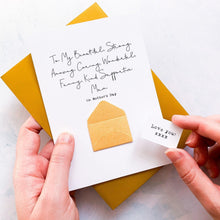 To My Beautiful, Strong
Amazing, Caring, Wonderful
Funny, Kind, Supportive
Mum
on Mother's Day
Love you!
xxxx